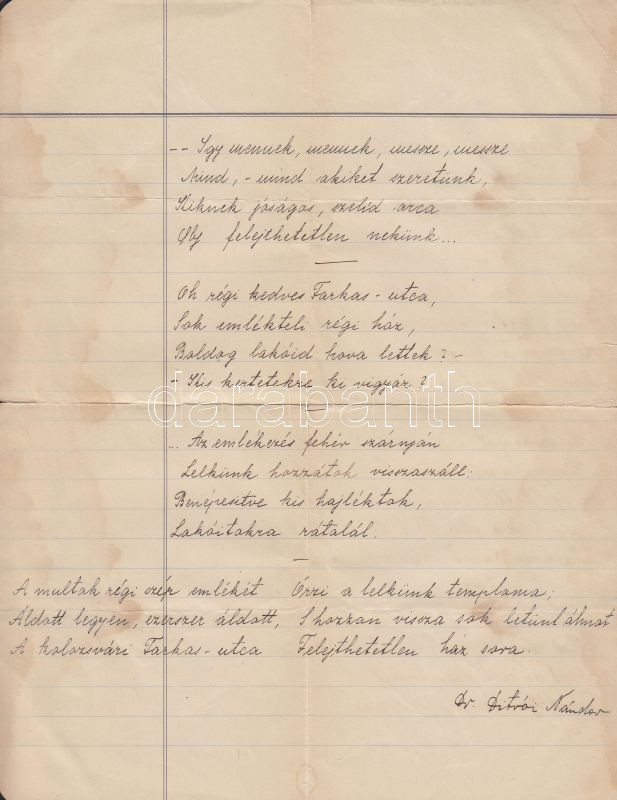 -- Igy mennek, mennek, messze, messze
Mind, - mind akiket szeretünk,
Kiknek jóságos, szelid arca
Oly felejthetetlen nekünk...
Oh régi kedves Farkas-utca,
Sok emlékteli régi ház,
Boldog lakóid hova lettek? -
- Kis kertetekre ki vigyáz?
darabanth
... Az emlékezés fehér szárnyán
Lelkünk hozzátok visszaszáll;
Benépesitve kis hajléktok,
Lakóitokra rátalál.
A multak régi szép emlékét
Áldott legyen, ezerszer áldott,
A kolozsvári Farkas-utca
Őrzi a lelkünk temploma;
S hozzon vissza sok letünt álmat
Felejthetetlen ház sora.
Dr. Ditrói Nándor